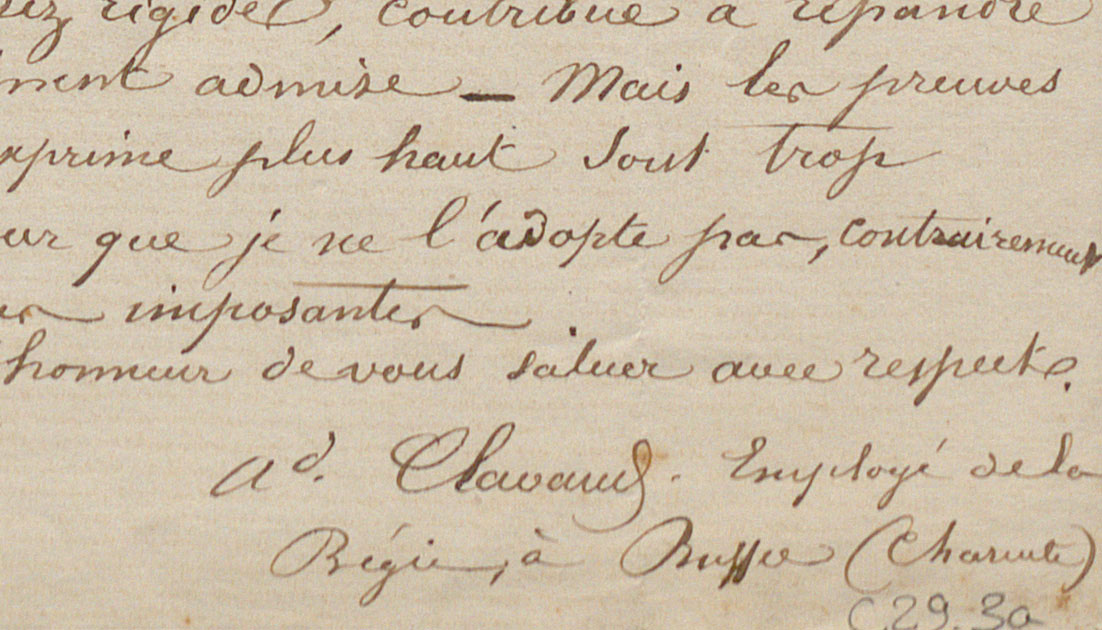 ez rigide, contribue à répandre
ment admise — Mais les preuves
xprime plus haut sont trop
ur que je ne l'adopte pas, contrairement
imposantes.
honneur de vous saluer avec respect.
Ad. Clavaud. Employé de la
Régie, à Ruffec (Charente)
C.29.3a